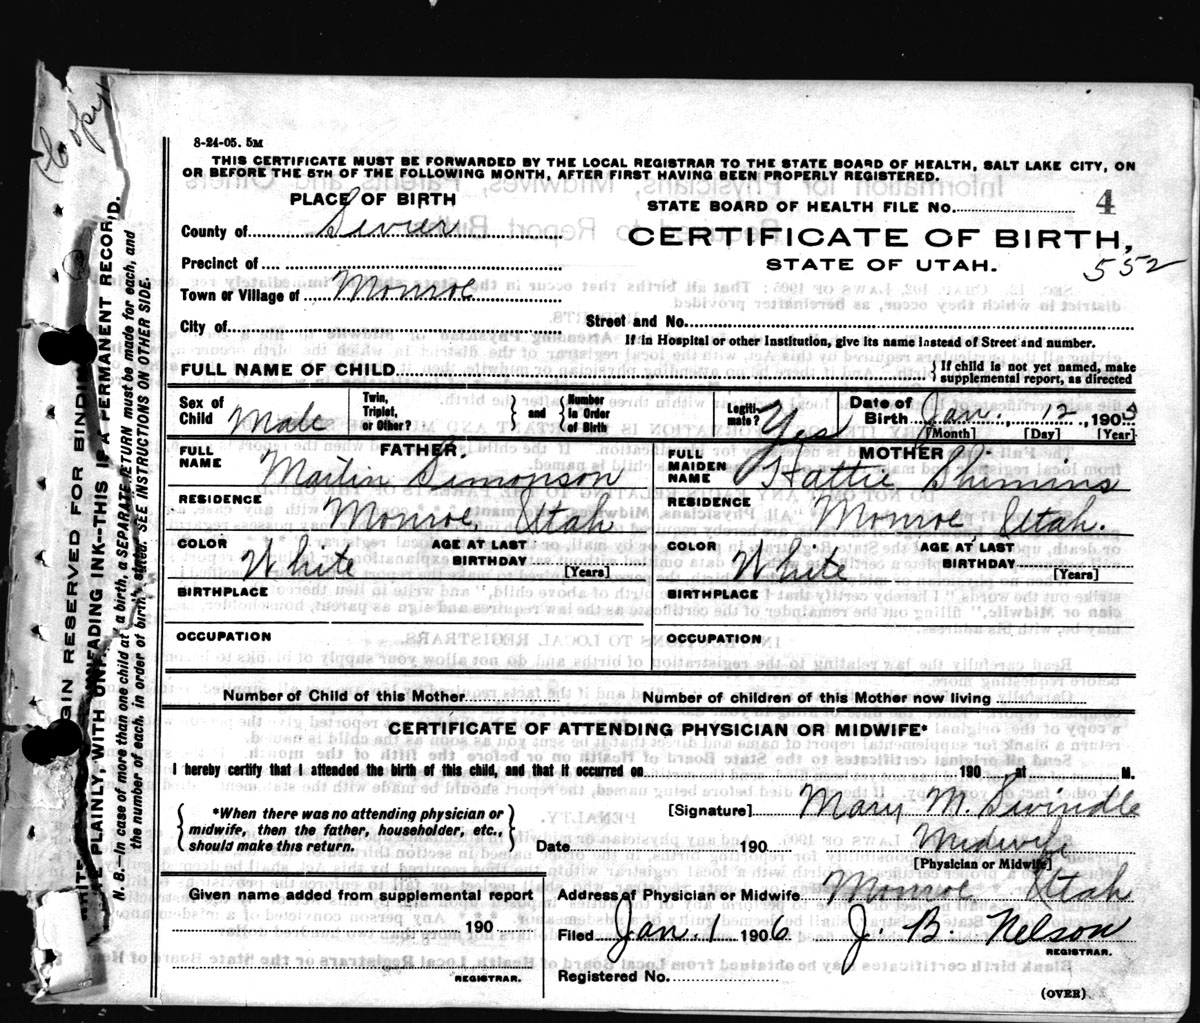 Copy
8-24-05. 5M
THIS CERTIFICATE MUST BE FORWARDED BY THE LOCAL REGISTRAR TO THE STATE BOARD OF HEALTH, SALT LAKE CITY, ON
OR BEFORE THE 5TH OF THE FOLLOWING MONTH, AFTER FIRST HAVING BEEN PROPERLY REGISTERED.
PLACE OF BIRTH
STATE BOARD OF HEALTH FILE NO. 4
County of Sevier
CERTIFICATE OF BIRTH,
STATE OF UTAH.
552
Precinct of
Town or Village of Monroe
City of
Street and No.
If in Hospital or other Institution, give its name instead of Street and number.
FULL NAME OF CHILD
{ If child is not yet named, make
supplemental report, as directed
Sex of Child Male
Twin, Triplet, or Other? } and { Number in Order of Birth
Legiti-mate? Yes
Date of Birth Jan. 12, 1905
[Month] [Day] [Year]
FATHER.
FULL NAME Martin Simonson
RESIDENCE Monroe, Utah
COLOR White
AGE AT LAST BIRTHDAY [Years]
BIRTHPLACE
OCCUPATION
MOTHER.
FULL MAIDEN NAME Hattie Shimms
RESIDENCE Monroe Utah.
COLOR White
AGE AT LAST BIRTHDAY [Years]
BIRTHPLACE
OCCUPATION
Number of Child of this Mother
Number of children of this Mother now living
CERTIFICATE OF ATTENDING PHYSICIAN OR MIDWIFE*
I hereby certify that I attended the birth of this child, and that it occurred on 190 at M.
{ *When there was no attending physician or
midwife, then the father, householder, etc.,
should make this return. }
[Signature] Mary M. Swindle
Date 190
Midwife
[Physician or Midwife]
Given name added from supplemental report
190
REGISTRAR.
Address of Physician or Midwife Monroe Utah
Filed Jan. 1 1906 J. B. Nelson
REGISTRAR.
Registered No.
(OVER)
MARGIN RESERVED FOR BINDING
WRITE PLAINLY, WITH UNFADING INK--THIS IS A PERMANENT RECORD.
N. B.--In case of more than one child at a birth, a SEPARATE RETURN must be made for each, and
the number of each, in order of birth, stated. SEE INSTRUCTIONS ON OTHER SIDE.